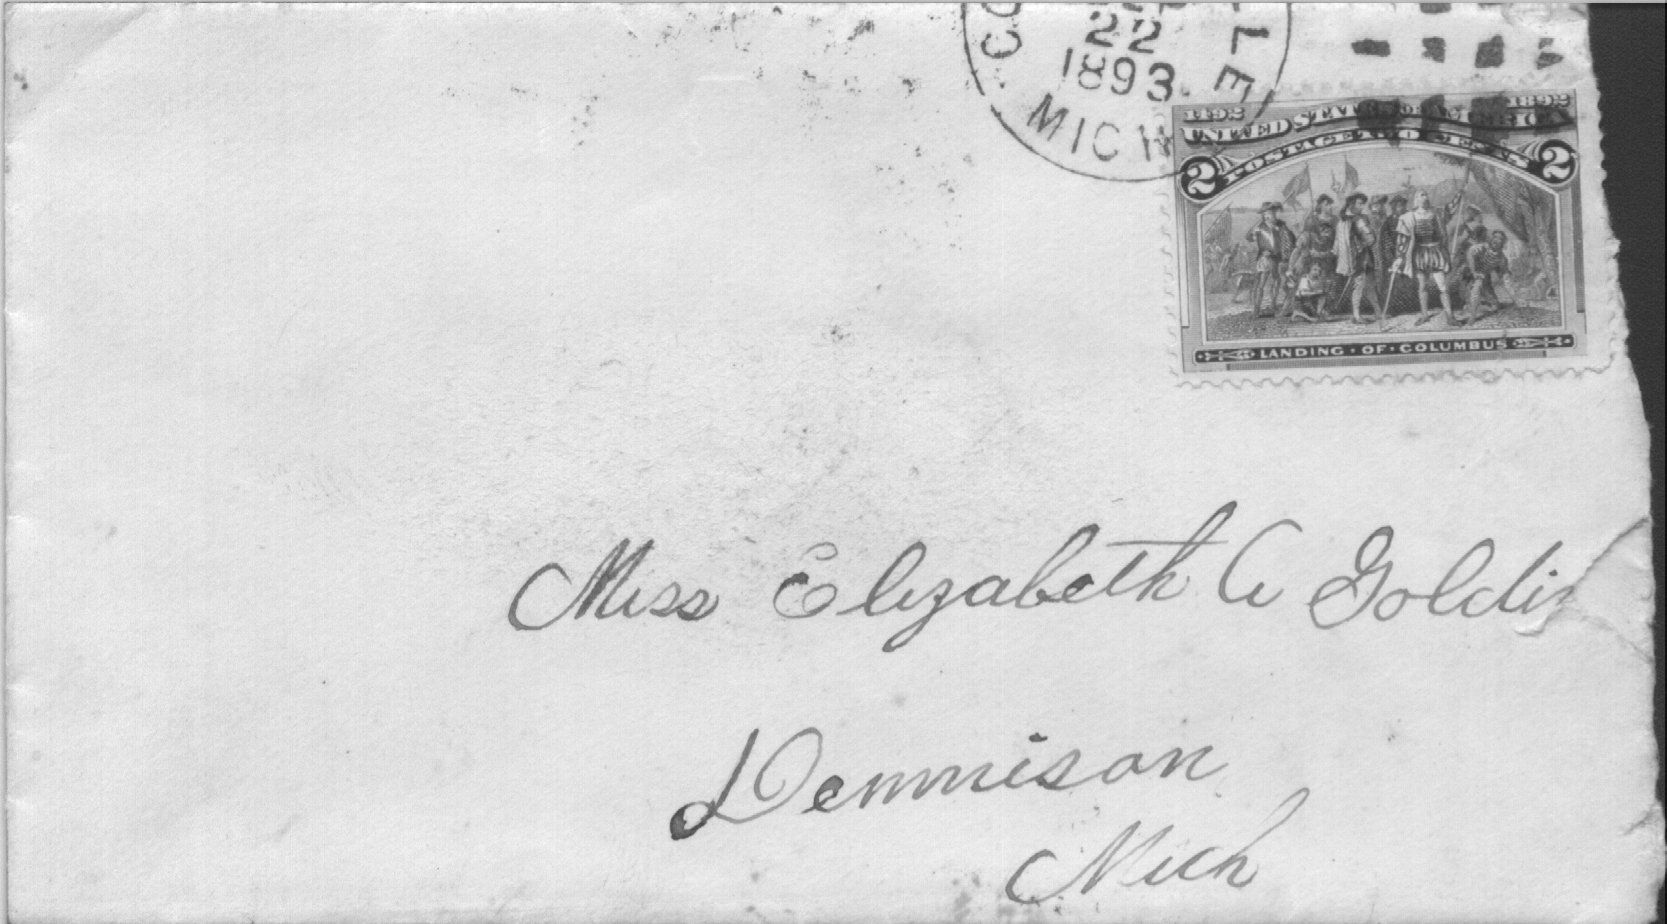 22
1893
MICH
1492 1892
UNITED STATES OF AMERICA
POSTAGE TWO CENTS
2 2
LANDING · OF · COLUMBUS
Miss Elizabeth A Goldin
Dennison
Mich